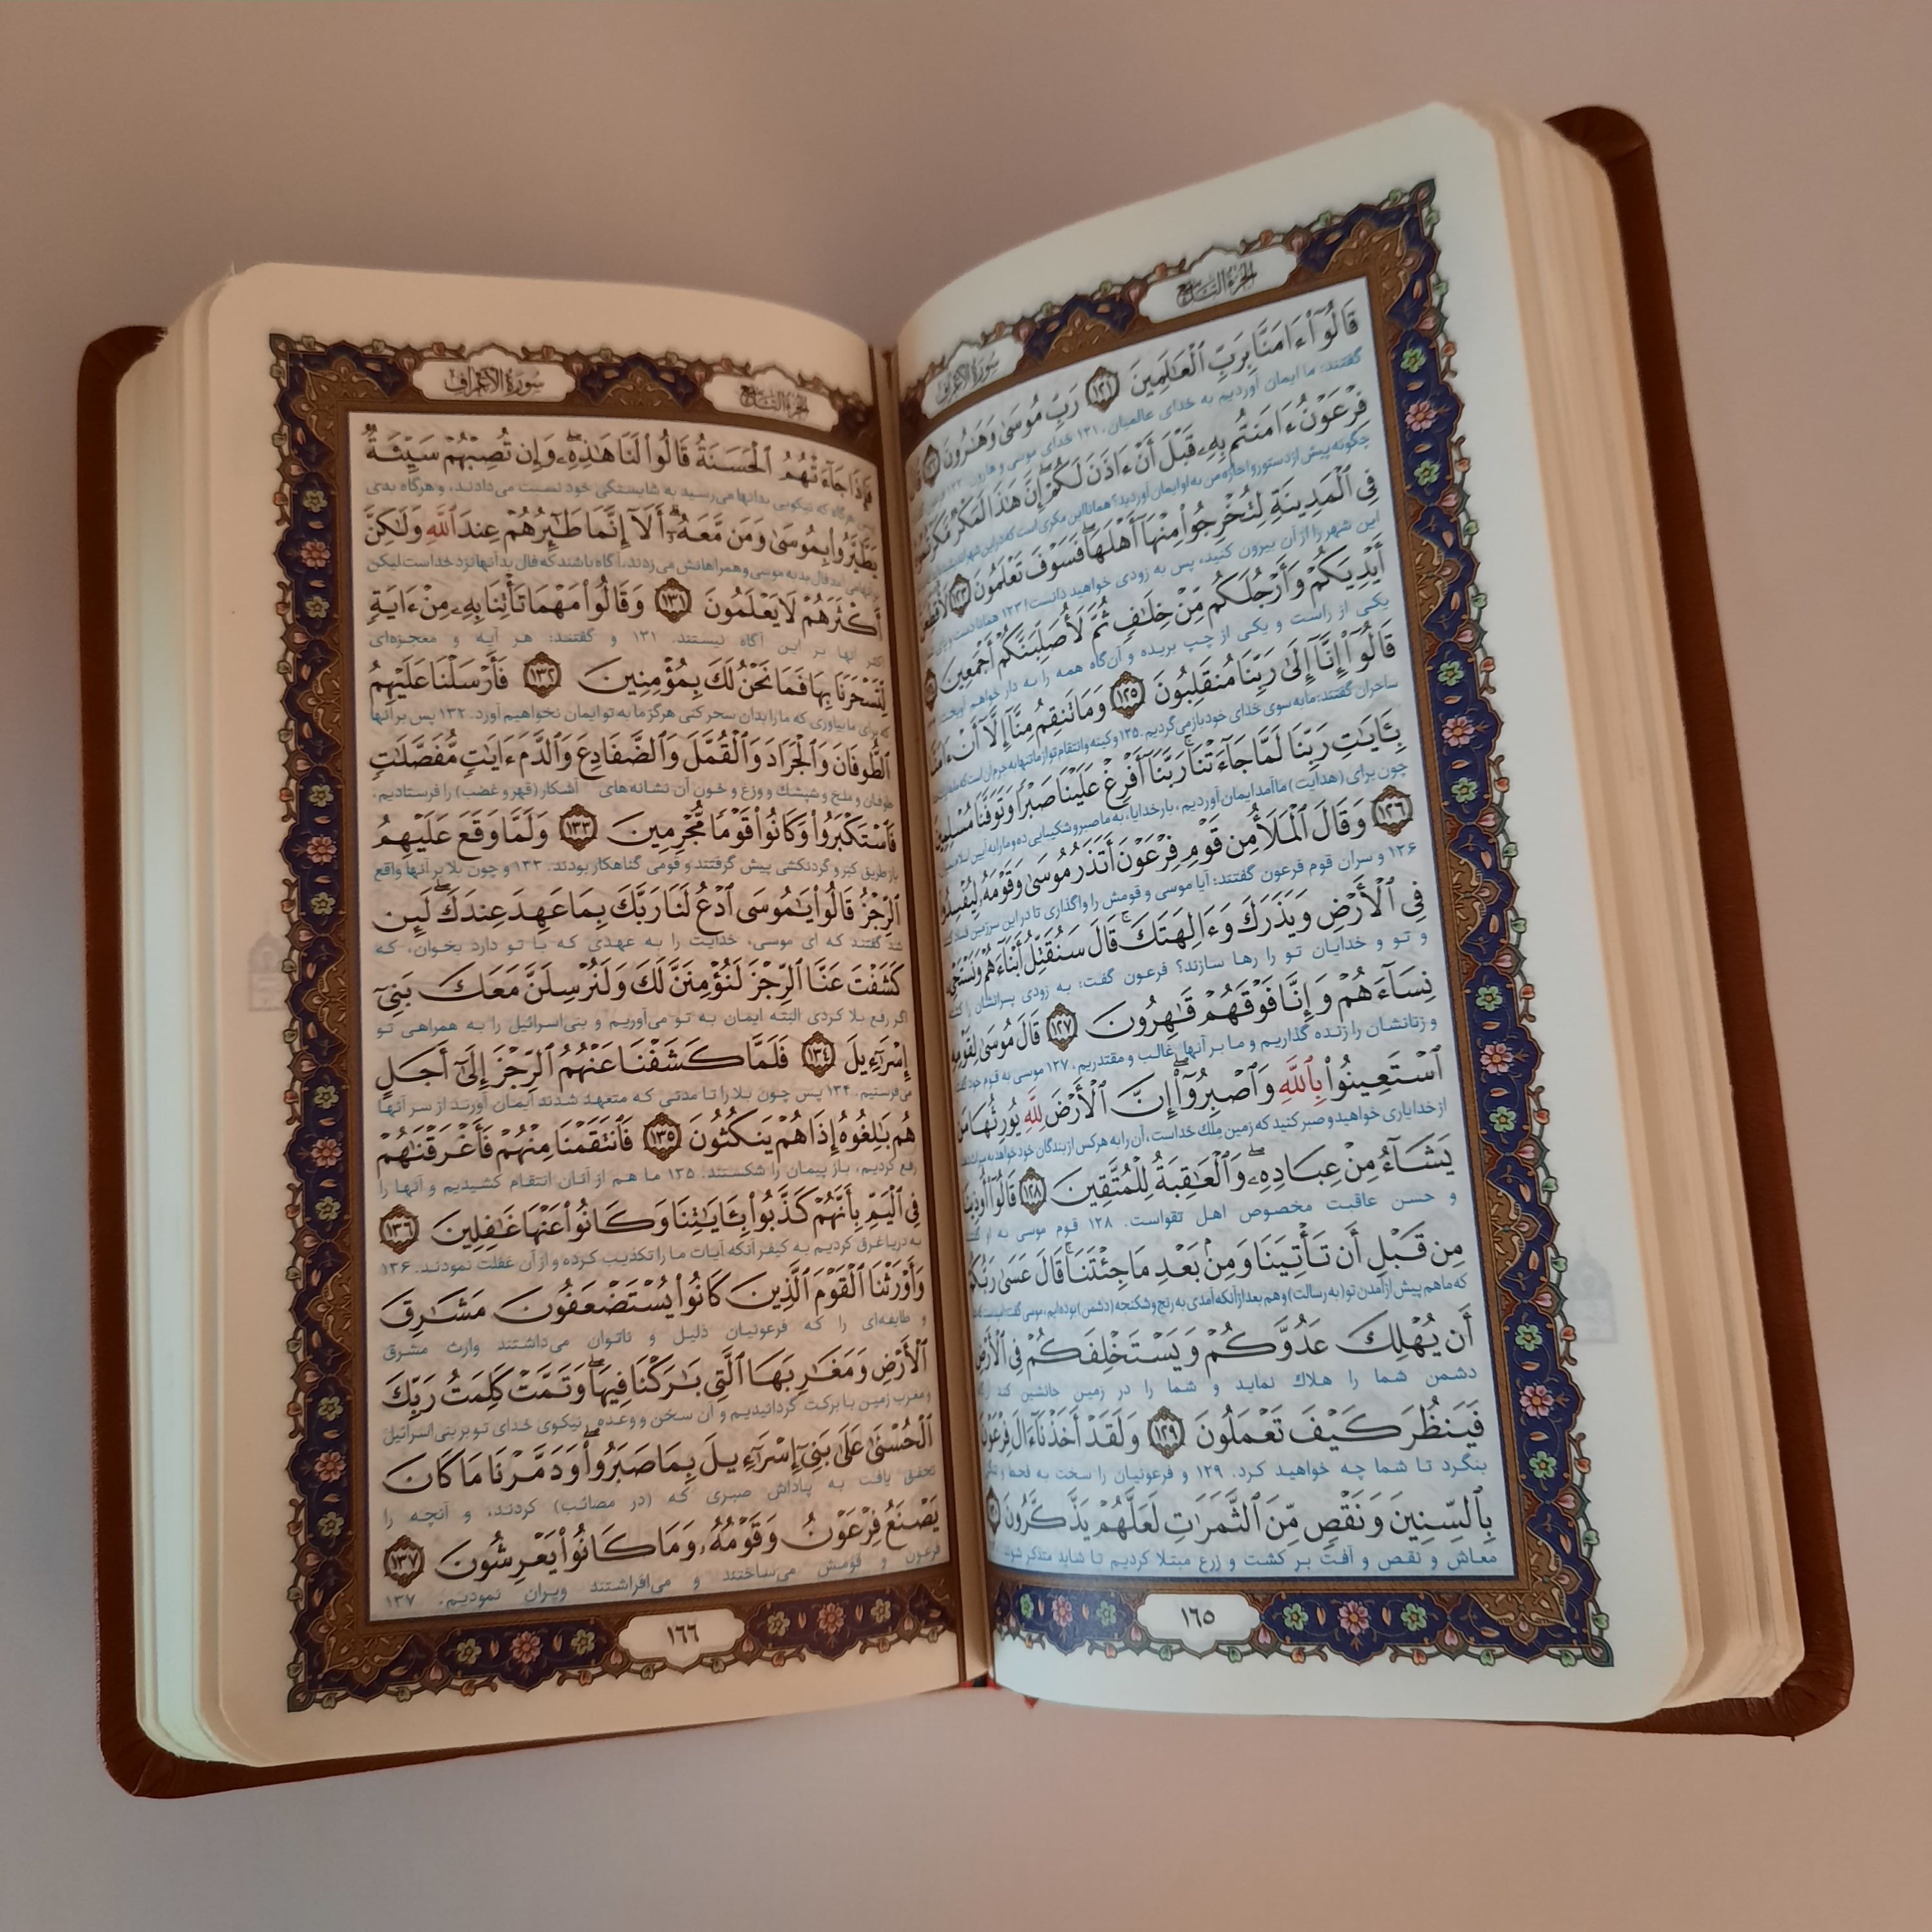 الجزء التاسع
سورة الأعراف
قَالُوٓا۟ ءَامَنَّا بِرَبِّ ٱلْعَـٰلَمِينَ ١٢١ رَبِّ مُوسَىٰ وَهَـٰرُونَ ١٢٢ قَالَ
گفتند: ما ایمان آوردیم به خدای عالمیان. ۱۲۱ خدای موسی و هارون.
فِرْعَوْنُ ءَامَنتُم بِهِۦ قَبْلَ أَنْ ءَاذَنَ لَكُمْ ۖ إِنَّ هَـٰذَا لَمَكْرٌ مَّكَرْتُمُوهُ
چگونه پیش از دستور و اجازه من به او ایمان آوردید؟ همانا این مکری است که در این شهر
فِى ٱلْمَدِينَةِ لِتُخْرِجُوا۟ مِنْهَآ أَهْلَهَا ۖ فَسَوْفَ تَعْلَمُونَ ١٢٣ لَأُقَطِّعَنَّ
این شهر را از آن بیرون کنید، پس به زودی خواهید دانست! ۱۲۳ همانا دست و پای
أَيْدِيَكُمْ وَأَرْجُلَكُم مِّنْ خِلَـٰفٍ ثُمَّ لَأُصَلِّبَنَّكُمْ أَجْمَعِينَ
یکی از راست و یکی از چپ بریده و آن‌گاه همه را به دار خواهم آویخت
قَالُوٓا۟ إِنَّآ إِلَىٰ رَبِّنَا مُنقَلِبُونَ ١٢٥ وَمَا تَنقِمُ مِنَّآ إِلَّآ أَنْ ءَامَنَّا
ساحران گفتند: ما به سوی خدای خود باز می‌گردیم. ۱۲۵ و کینه و انتقام تو از ما تنها به جرم آن است که ما
بِـَٔايَـٰتِ رَبِّنَا لَمَّا جَآءَتْنَا ۚ رَبَّنَآ أَفْرِغْ عَلَيْنَا صَبْرًا وَتَوَفَّنَا مُسْلِمِينَ
چون برای (هدایت) ما آمد ایمان آوردیم، بار خدایا، به ما صبر و شکیبایی ده و ما را به آیین اسلام
١٢٦ وَقَالَ ٱلْمَلَأُ مِن قَوْمِ فِرْعَوْنَ أَتَذَرُ مُوسَىٰ وَقَوْمَهُۥ لِيُفْسِدُوا۟
۱۲۶ و سران قوم فرعون گفتند: آیا موسی و قومش را واگذاری تا در این سرزمین فساد کنند
فِى ٱلْأَرْضِ وَيَذَرَكَ وَءَالِهَتَكَ ۚ قَالَ سَنُقَتِّلُ أَبْنَآءَهُمْ وَنَسْتَحْىِۦ
و تو و خدایان تو را رها سازند؟ فرعون گفت: به زودی پسرانشان را کشته
نِسَآءَهُمْ وَإِنَّا فَوْقَهُمْ قَـٰهِرُونَ ١٢٧ قَالَ مُوسَىٰ لِقَوْمِهِ
و زنانشان را زنده گذاریم و ما بر آنها غالب و مقتدریم. ۱۲۷ موسی به قوم خود گفت
ٱسْتَعِينُوا۟ بِٱللَّهِ وَٱصْبِرُوٓا۟ ۖ إِنَّ ٱلْأَرْضَ لِلَّهِ يُورِثُهَا مَن
از خدا یاری خواهید و صبر کنید که زمین ملك خداست، آن را به هر کس از بندگان خود خواهد به میراث دهد
يَشَآءُ مِنْ عِبَادِهِۦ ۖ وَٱلْعَـٰقِبَةُ لِلْمُتَّقِينَ ١٢٨ قَالُوٓا۟ أُوذِينَا
و حسن عاقبت مخصوص اهل تقواست. ۱۲۸ قوم موسی به او گفتند
مِن قَبْلِ أَن تَأْتِيَنَا وَمِنۢ بَعْدِ مَا جِئْتَنَا ۚ قَالَ عَسَىٰ رَبُّكُمْ
که ما هم پیش از آمدن تو (به رسالت) و هم بعد از آنکه آمدی به رنج و شکنجه (دشمن) بوده‌ایم. موسی گفت
أَن يُهْلِكَ عَدُوَّكُمْ وَيَسْتَخْلِفَكُمْ فِى ٱلْأَرْضِ
دشمن شما را هلاك نماید و شما را در زمین جانشین کند
فَيَنظُرَ كَيْفَ تَعْمَلُونَ ١٢٩ وَلَقَدْ أَخَذْنَآ ءَالَ فِرْعَوْنَ
بنگرد تا شما چه خواهید کرد. ۱۲۹ و فرعونیان را سخت به قحط و تنگی
بِٱلسِّنِينَ وَنَقْصٍ مِّنَ ٱلثَّمَرَٰتِ لَعَلَّهُمْ يَذَّكَّرُونَ
معاش و نقص و آفت بر کشت و زرع مبتلا کردیم تا شاید متذکر شوند
١٦٥
الجزء التاسع
سورة الأعراف
فَإِذَا جَآءَتْهُمُ ٱلْحَسَنَةُ قَالُوا۟ لَنَا هَـٰذِهِۦ ۖ وَإِن تُصِبْهُمْ سَيِّئَةٌ
هرگاه که نیکویی بدانها می‌رسید به شایستگی خود نسبت می‌دادند، و هرگاه بدی
يَطَّيَّرُوا۟ بِمُوسَىٰ وَمَن مَّعَهُۥٓ ۗ أَلَآ إِنَّمَا طَـٰٓئِرُهُمْ عِندَ ٱللَّهِ وَلَـٰكِنَّ
آمد فال بد به موسی و همراهانش می‌زدند. آگاه باشند که فال بد آنها نزد خداست لیکن
أَكْثَرَهُمْ لَا يَعْلَمُونَ ١٣١ وَقَالُوا۟ مَهْمَا تَأْتِنَا بِهِۦ مِنْ ءَايَةٍ
اکثر آنها بر این آگاه نیستند. ۱۳۱ و گفتند: هر آیه و معجزه‌ای
لِّتَسْحَرَنَا بِهَا فَمَا نَحْنُ لَكَ بِمُؤْمِنِينَ ١٣٢ فَأَرْسَلْنَا عَلَيْهِمُ
که برای ما بیاوری که ما را بدان سحر کنی هرگز ما به تو ایمان نخواهیم آورد. ۱۳۲ پس بر آنها
ٱلطُّوفَانَ وَٱلْجَرَادَ وَٱلْقُمَّلَ وَٱلضَّفَادِعَ وَٱلدَّمَ ءَايَـٰتٍ مُّفَصَّلَـٰتٍ
طوفان و ملخ و شپشك و وزغ و خون آن نشانه‌های آشکار (قهر و غضب) را فرستادیم.
فَٱسْتَكْبَرُوا۟ وَكَانُوا۟ قَوْمًا مُّجْرِمِينَ ١٣٣ وَلَمَّا وَقَعَ عَلَيْهِمُ
باز طریق کبر و گردنکشی پیش گرفتند و قومی گناهکار بودند. ۱۳۳ و چون بلا بر آنها واقع
ٱلرِّجْزُ قَالُوا۟ يَـٰمُوسَى ٱدْعُ لَنَا رَبَّكَ بِمَا عَهِدَ عِندَكَ ۖ لَئِن
شد گفتند که ای موسی، خدایت را به عهدی که با تو دارد بخوان، که
كَشَفْتَ عَنَّا ٱلرِّجْزَ لَنُؤْمِنَنَّ لَكَ وَلَنُرْسِلَنَّ مَعَكَ بَنِىٓ
اگر رفع بلا کردی البته ایمان به تو می‌آوریم و بنی‌اسرائیل را به همراهی تو
إِسْرَٰٓءِيلَ ١٣٤ فَلَمَّا كَشَفْنَا عَنْهُمُ ٱلرِّجْزَ إِلَىٰٓ أَجَلٍ
می‌فرستیم. ۱۳۴ پس چون بلا را تا مدتی که متعهد شدند ایمان آورند از سر آنها
هُم بَـٰلِغُوهُ إِذَا هُمْ يَنكُثُونَ ١٣٥ فَٱنتَقَمْنَا مِنْهُمْ فَأَغْرَقْنَـٰهُمْ
رفع کردیم، باز پیمان را شکستند. ۱۳۵ ما هم از آنان انتقام کشیدیم و آنها را
فِى ٱلْيَمِّ بِأَنَّهُمْ كَذَّبُوا۟ بِـَٔايَـٰتِنَا وَكَانُوا۟ عَنْهَا غَـٰفِلِينَ ١٣٦
به دریا غرق کردیم به کیفر آنکه آیات ما را تکذیب کرده و از آن غفلت نمودند. ۱۳۶
وَأَوْرَثْنَا ٱلْقَوْمَ ٱلَّذِينَ كَانُوا۟ يُسْتَضْعَفُونَ مَشَـٰرِقَ
و طایفه‌ای را که فرعونیان ذلیل و ناتوان می‌داشتند وارث مشرق
ٱلْأَرْضِ وَمَغَـٰرِبَهَا ٱلَّتِى بَـٰرَكْنَا فِيهَا ۖ وَتَمَّتْ كَلِمَتُ رَبِّكَ
و مغرب زمین با برکت گردانیدیم و آن سخن و وعده نیکوی خدای تو بر بنی‌اسرائیل
ٱلْحُسْنَىٰ عَلَىٰ بَنِىٓ إِسْرَٰٓءِيلَ بِمَا صَبَرُوا۟ ۖ وَدَمَّرْنَا مَا كَانَ
تحقق یافت به پاداش صبری که (در مصائب) کردند، و آنچه را
يَصْنَعُ فِرْعَوْنُ وَقَوْمُهُۥ وَمَا كَانُوا۟ يَعْرِشُونَ ١٣٧
فرعون و قومش می‌ساختند و می‌افراشتند ویران نمودیم. ۱۳۷
١٦٦